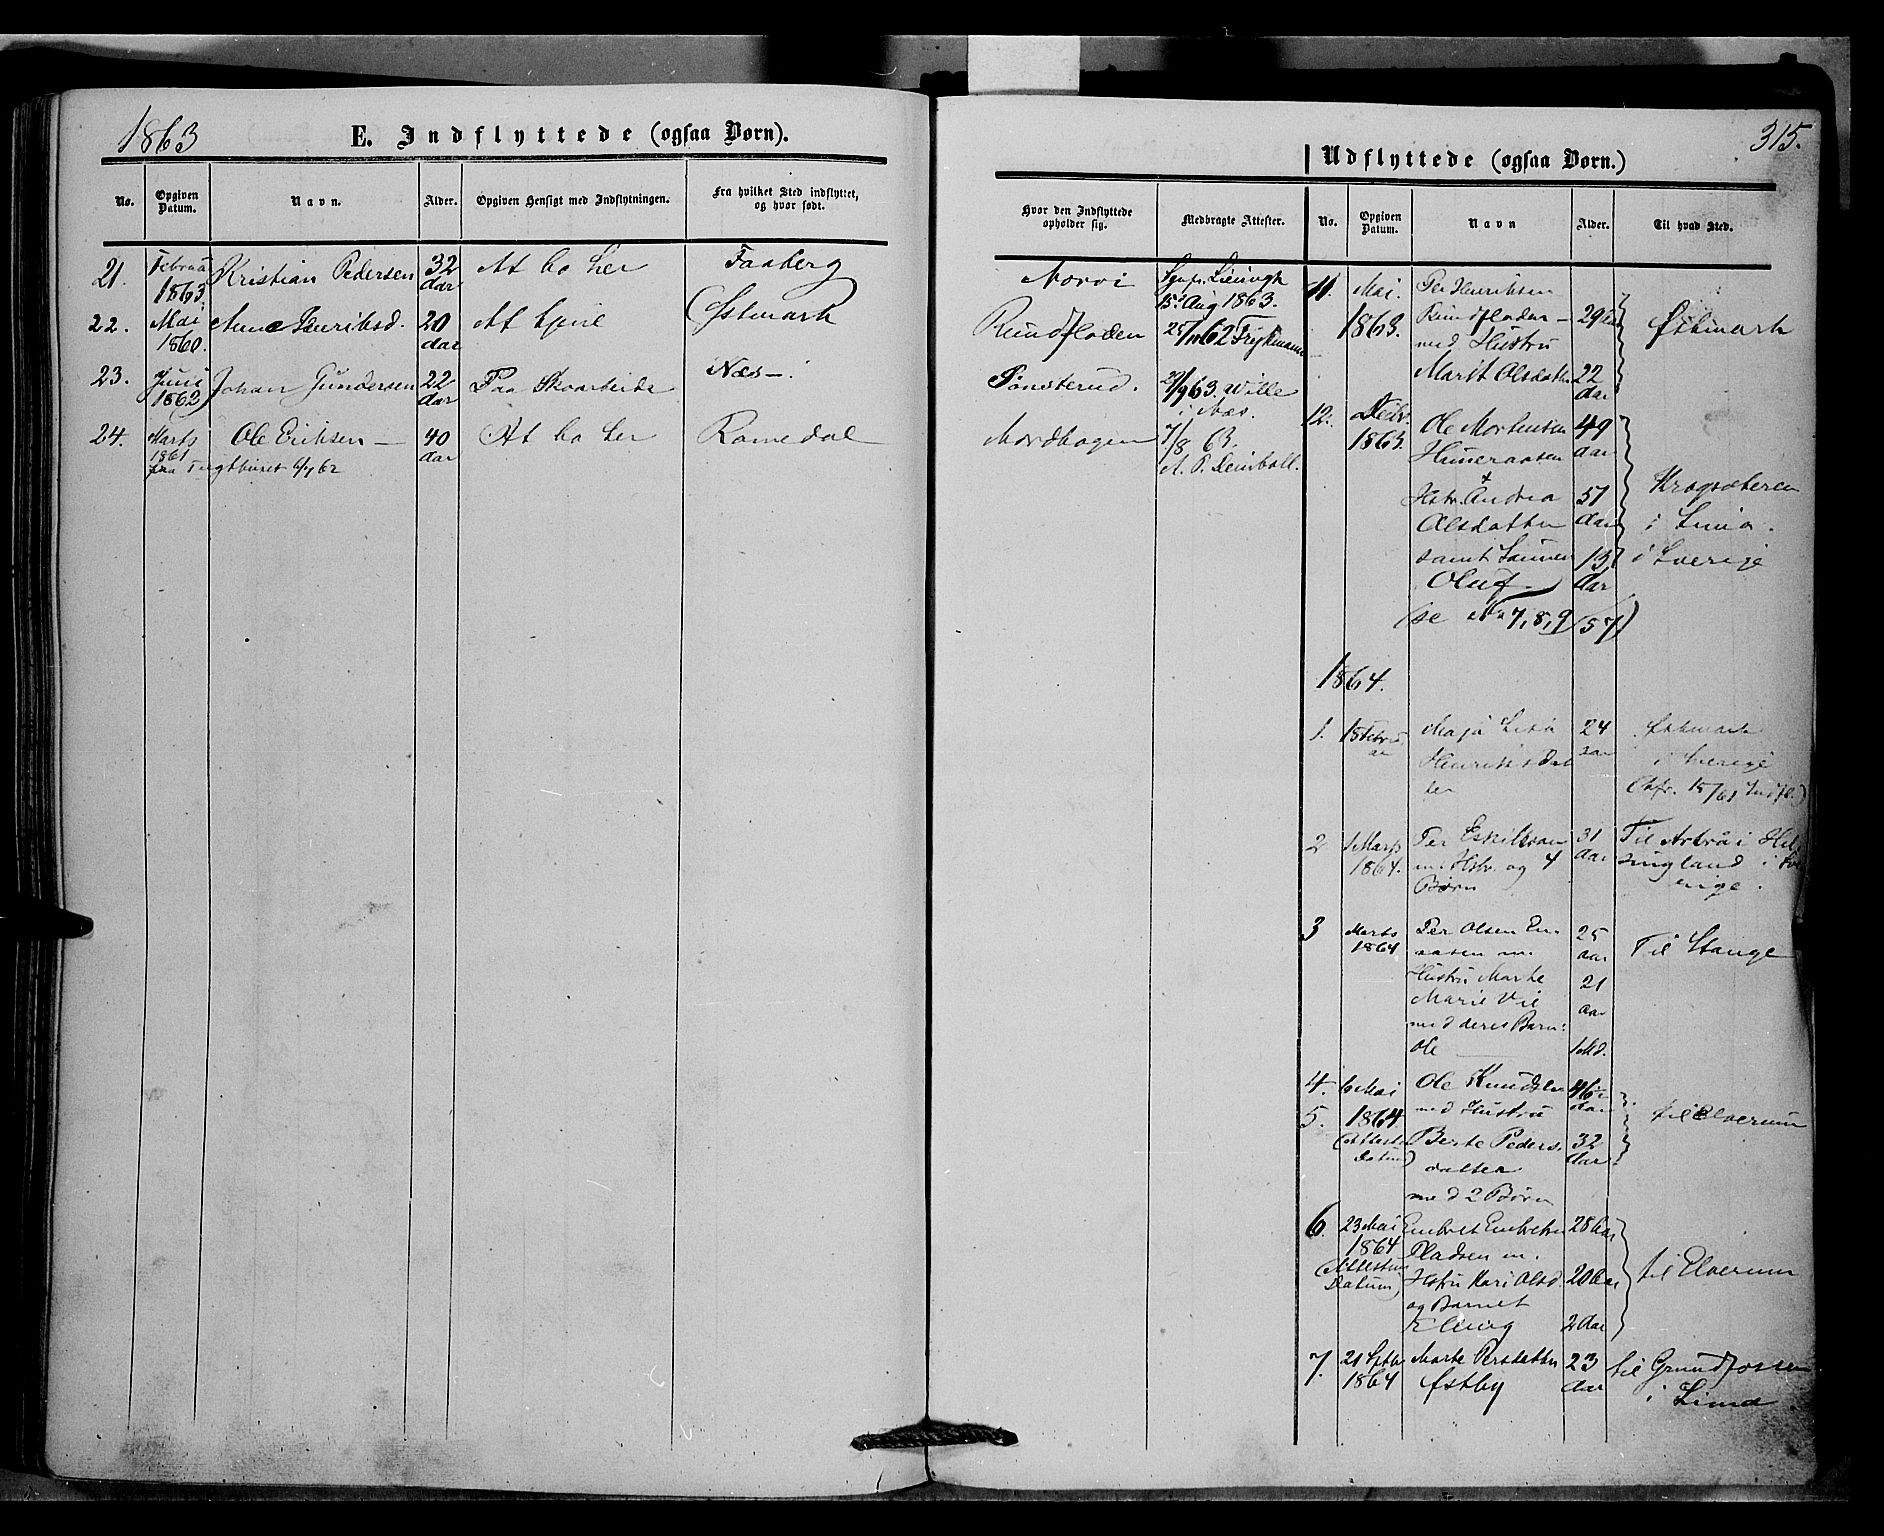 1863
E. Indflyttede (ogsaa Børn).
No. Opgiven Datum. Navn. Alder. Opgiven Hensigt med Indflytningen. Fra hvilket Sted indflyttet, og hvor født.
21. Februar 1863. Kristian Pedersen 32 Aar At bo her Faaberg
22. Mai 1860. Anne Henriksd. 20 Aar At tjene Østmark
23. Juni 1862 Johan Gundersen 22 Aar Paa Skovarbeide Næs
24. Marts 1861 Ole Eriksen 40 Aar At bo her Romedal
fra Tugthuset 6/4 62
315.
Udflyttede (ogsaa Børn.)
Hvor den Indflyttede opholder sig. Medbragte Attester. No. Opgiven Datum. Navn Alder. Til hvad Sted.
15de Aug 1863.
Rundfloden
Sønsterud. 29/9 63. Wille
i Næs.
Nordhagen 7/8 63.
11. Mai. 1863. Per Henriksen
Rundfloden 29
med Hustru
Marit Olsdatter 22 Aar
Østmark
12. Decbr. 1863. Ole Mortensen 49 Aar
Hstr. Andrea 51
Olsdatter Aar
samt Sønnen 13
Oluf Aar
(se No 7, 8, 9 (57)
i Lima.
i Sverige
1864.
1. 15 Februar Maja Lisa 24 Aar Østmark
Henriksdatter i Sverige
(cfr. 15/61 Indfl.)
2 1 Marts 1864. Per Eskilsen 31 Aar Til Arbrå i Helsingland i Sverige.
m. Hstr. og 4
Børn
3 Marts 1864 Per Olsen 25 Aar Til Stange
Hustru Marte 21
Marie Aar
med deres Barn:
Ole 1 Md.
4. 6 Mai Ole Knudsen 46
5. 1864 med Hustru Aar til Elverum
(Attestens Datum) Berte Pedersdatter 32 Aar
med 2 Børn
6. 23 Mai Embret Embretsen 28 Aar
1864 Pladsen m.
(Attestens Datum) Hstru Kari Olsd. 20 Aar til Elverum
og Barnet
Elling 2 Aar
7. 21 Septbr 1864 Marte Persdatter 23 Aar til Grundfossen
Østby i Lima